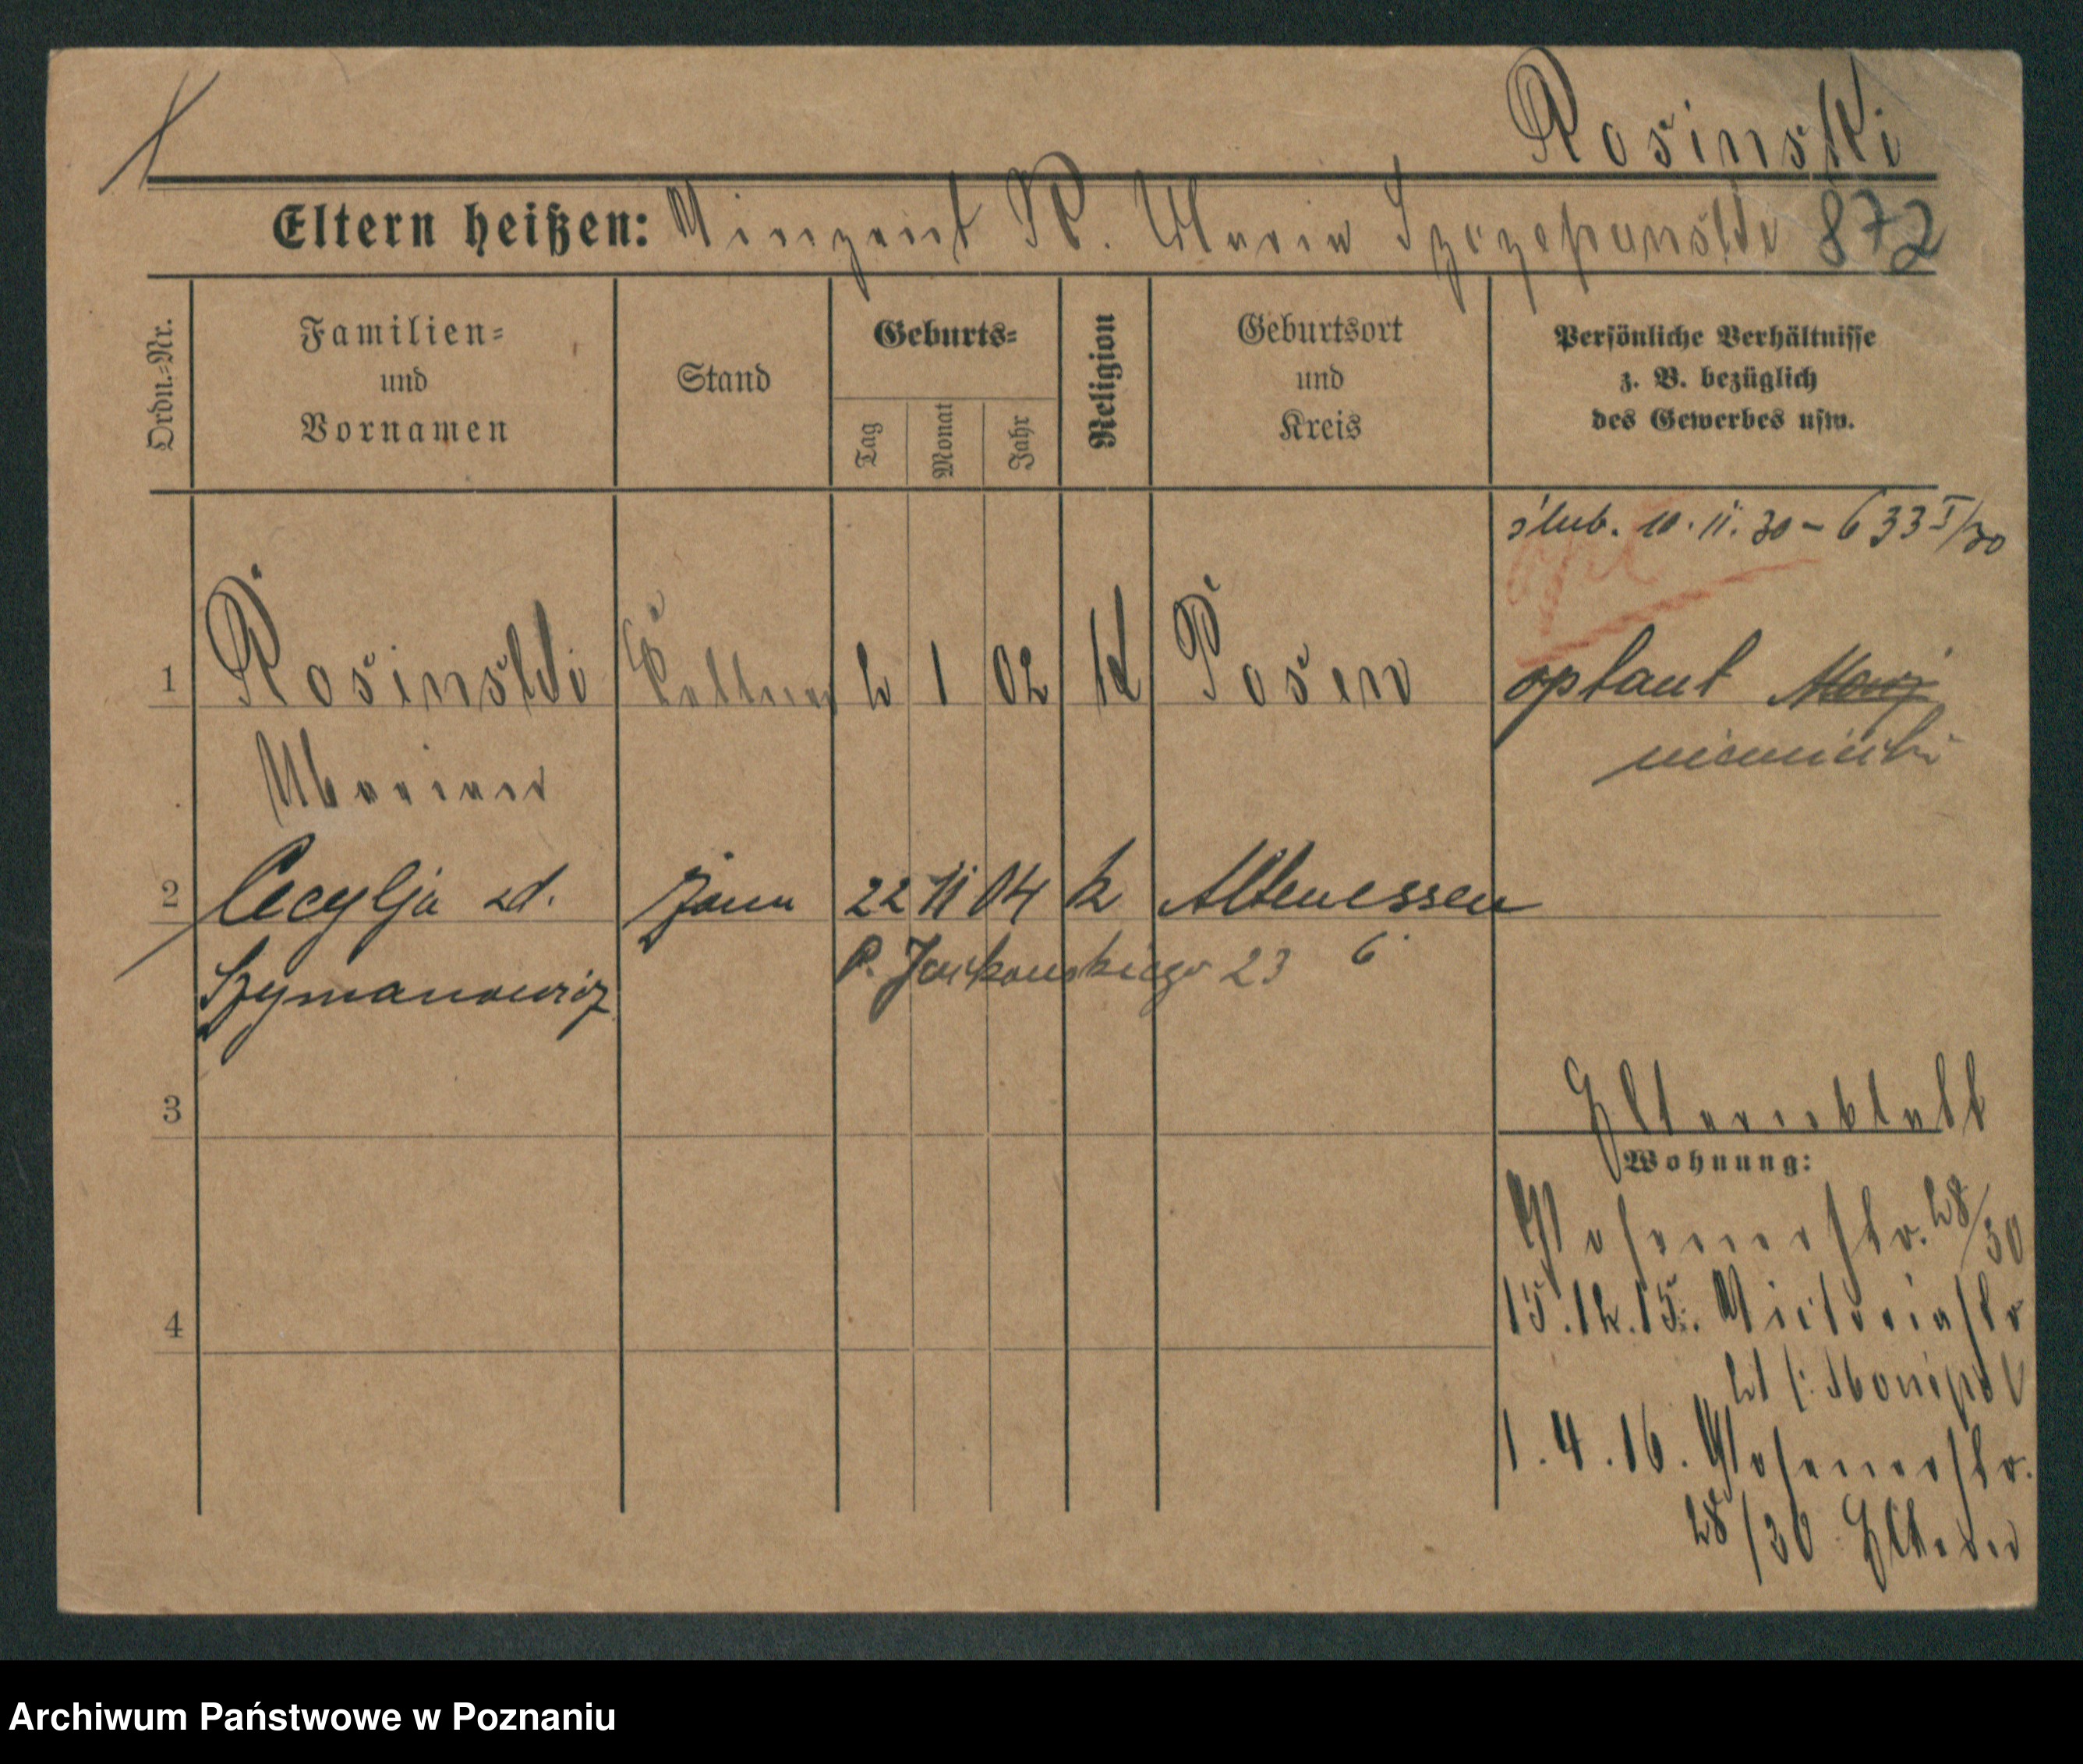 Rosinski
Eltern heißen: Vinzent R. Maria Szczepanska 872
Ordn.-Nr.
Familien-
und
Vornamen
Stand
Geburts-
Tag
Monat
Jahr
Religion
Geburtsort
und
Kreis
Persönliche Verhältnisse
z. B. bezüglich
des Gewerbes usw.
ślub. 10.11.30 - 633 I/30
1 Rosinski Kellner 2 1 02 K Posen optant
niemiecki
Marian
2 Cecylja zd. żona 22 11 04 k Altenessen
Szymanowicz P. Jackowskiego 23 6
3
Elternblatt
Wohnung:
Posenerstr. 28/30
15.12.15. Victoriastr
4
21
1.4.16. Posenerstr.
28/30 Eltern
Archiwum Państwowe w Poznaniu